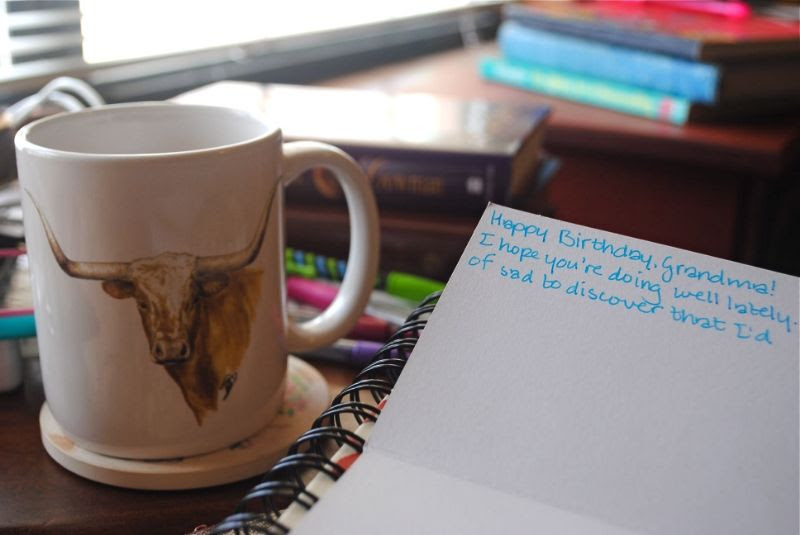 Happy Birthday, Grandma!
I hope you're doing well lately.
of sad to discover that I'd